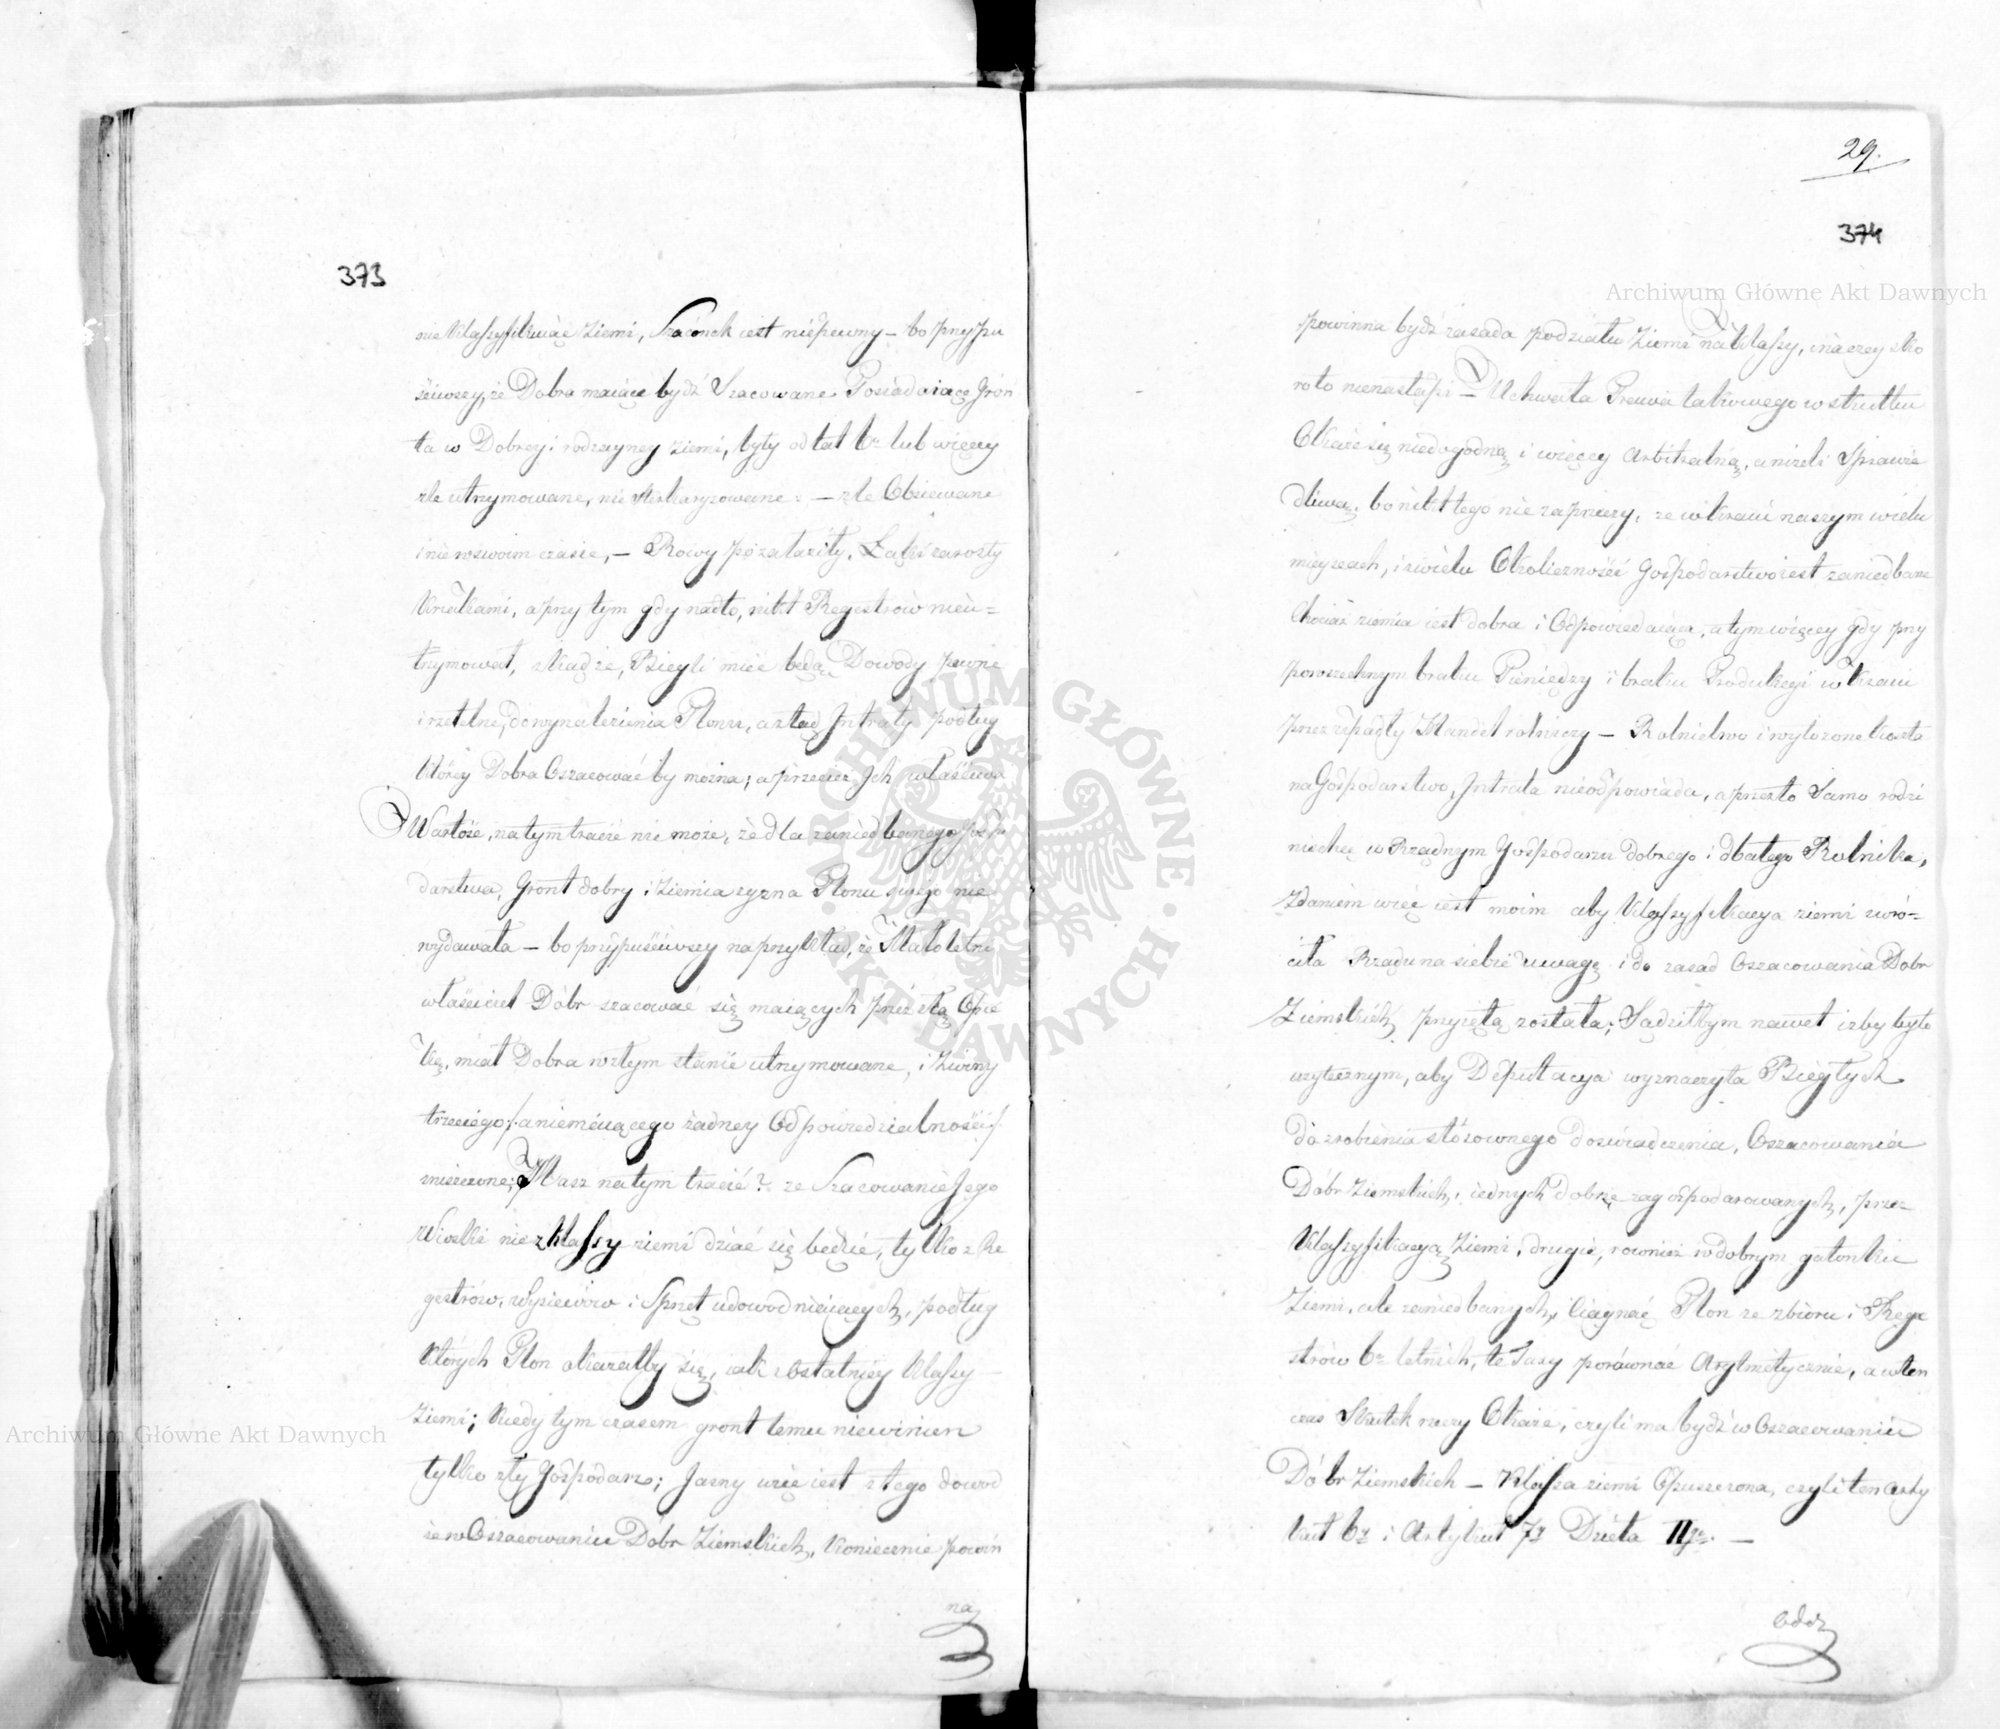 373
nie Klassyfikuiąc Ziemi, Szacunek iest niepewny – bo przypu
ściwszy, że Dobra maiące bydź Szacowane Posiadaiące Grón
ta w Dobrey i rodzayney ziemi, były od lat 6r lub więcey
źle utrzymowane, nie : – źle Obsiewane
i nie w swoim czasie, – Rowy pozalaziły, Łąki zarosły
Krzakami, a przy tym gdy nadto, nikt Regestrów nieu=
trzymował, skądże, Biegli mieć będą Dowody pewne
i rzetelne, do wynalezienia Plonu, a ztąd Intraty podług
którey Dobra Oszacować by można; a przecież Ich właściwa
Wartość, na tym tracić nie może, że dla zaniedbanego gospo
darstwa, Gront dobry i Ziemia żyzna Plonu swego nie
wydawała – bo przypuściwszy naprzykład, że Małoletni
właściciel Dóbr szacować się maiących przez złą Opie
kę, miał Dobra w złym stanie utrzymowane, i z winy
trzeciego /: a niemaiącego żadney Odpowiedzialności /:
zniszczone; Masz na tym tracić? że Szacowanie Jego
Wioski nie z klassy ziemi dziać się będzie, tylko z Re
gestrów, Wysiewów i Sprzęt udowodniaiących, podług
których Plon okazałby się, iak z Ostatniey Klassy
Ziemi; kiedy tym czasem gront temu niewinien
tylko zły Gospodarz; Jasny więc iest z tego dowod
że w Oszacowaniu Dóbr Ziemskich, koniecznie powin
na
29.
374
powinna bydź zasada podziału Ziemi na klassy, inaczey sko
ro to nienastąpi – Uchwała Prawa takowego w skutku
Okaże się niedogodną i więcey Arbitralną, aniżeli Sprawie
dliwą, bo nikt tego nie zaprzeczy, że w kraiu naszym wielu
mieyscach, i z wielu Okoliczności Gospodarstwo iest zaniedbane
Chociaż ziemia iest dobra i Odpowiedaiąca, a tym więcey gdy przy
powszechnym braku Pieniędzy i braku Produkcyi w kraiu
przez upadły Handel rolniczy – Rolnictwo i wyłożone koszta
na Gospodarstwo, Intrata nieodpowiada, a przezto Samo rodzi
niechęć w Rządnym Gospodarzu dobrego i dbałego Rolnika,
Zdaniem więc iest moim aby Klassyfikacya ziemi zwró=
ciła Rządu na siebie uwagę i do zasad Oszacowania Dóbr
Ziemskich przyiętą została; Sądziłbym nawet iżby było
użytecznym, aby Deputacya wyznaczyła Biegłych
do zrobienia stósownego doświadczenia, Oszacowania
Dóbr Ziemskich, iednych dobrze zagospodarowanych, przez
Klassyfikacyą Ziemi, drugie, rownież w dobrym gatonku
Ziemi, ale zaniedbanych, ciągnąć Plon ze zbioru i Rege
strów 6r letnich, te Taxy porównać Arytmetycznie, a wten
czas Skutek rzeczy Okaże, czyli ma bydź w Oszacowaniu
Dóbr Ziemskich – Klassa ziemi Opuszczona, czyli ten arty
kuł 6y i Artykuł 7y Dzieła IIgo. –
Archiwum Główne Akt Dawnych
Archiwum Główne Akt Dawnych
ARCHIWUM GŁÓWNE · AKT DAWNYCH ·